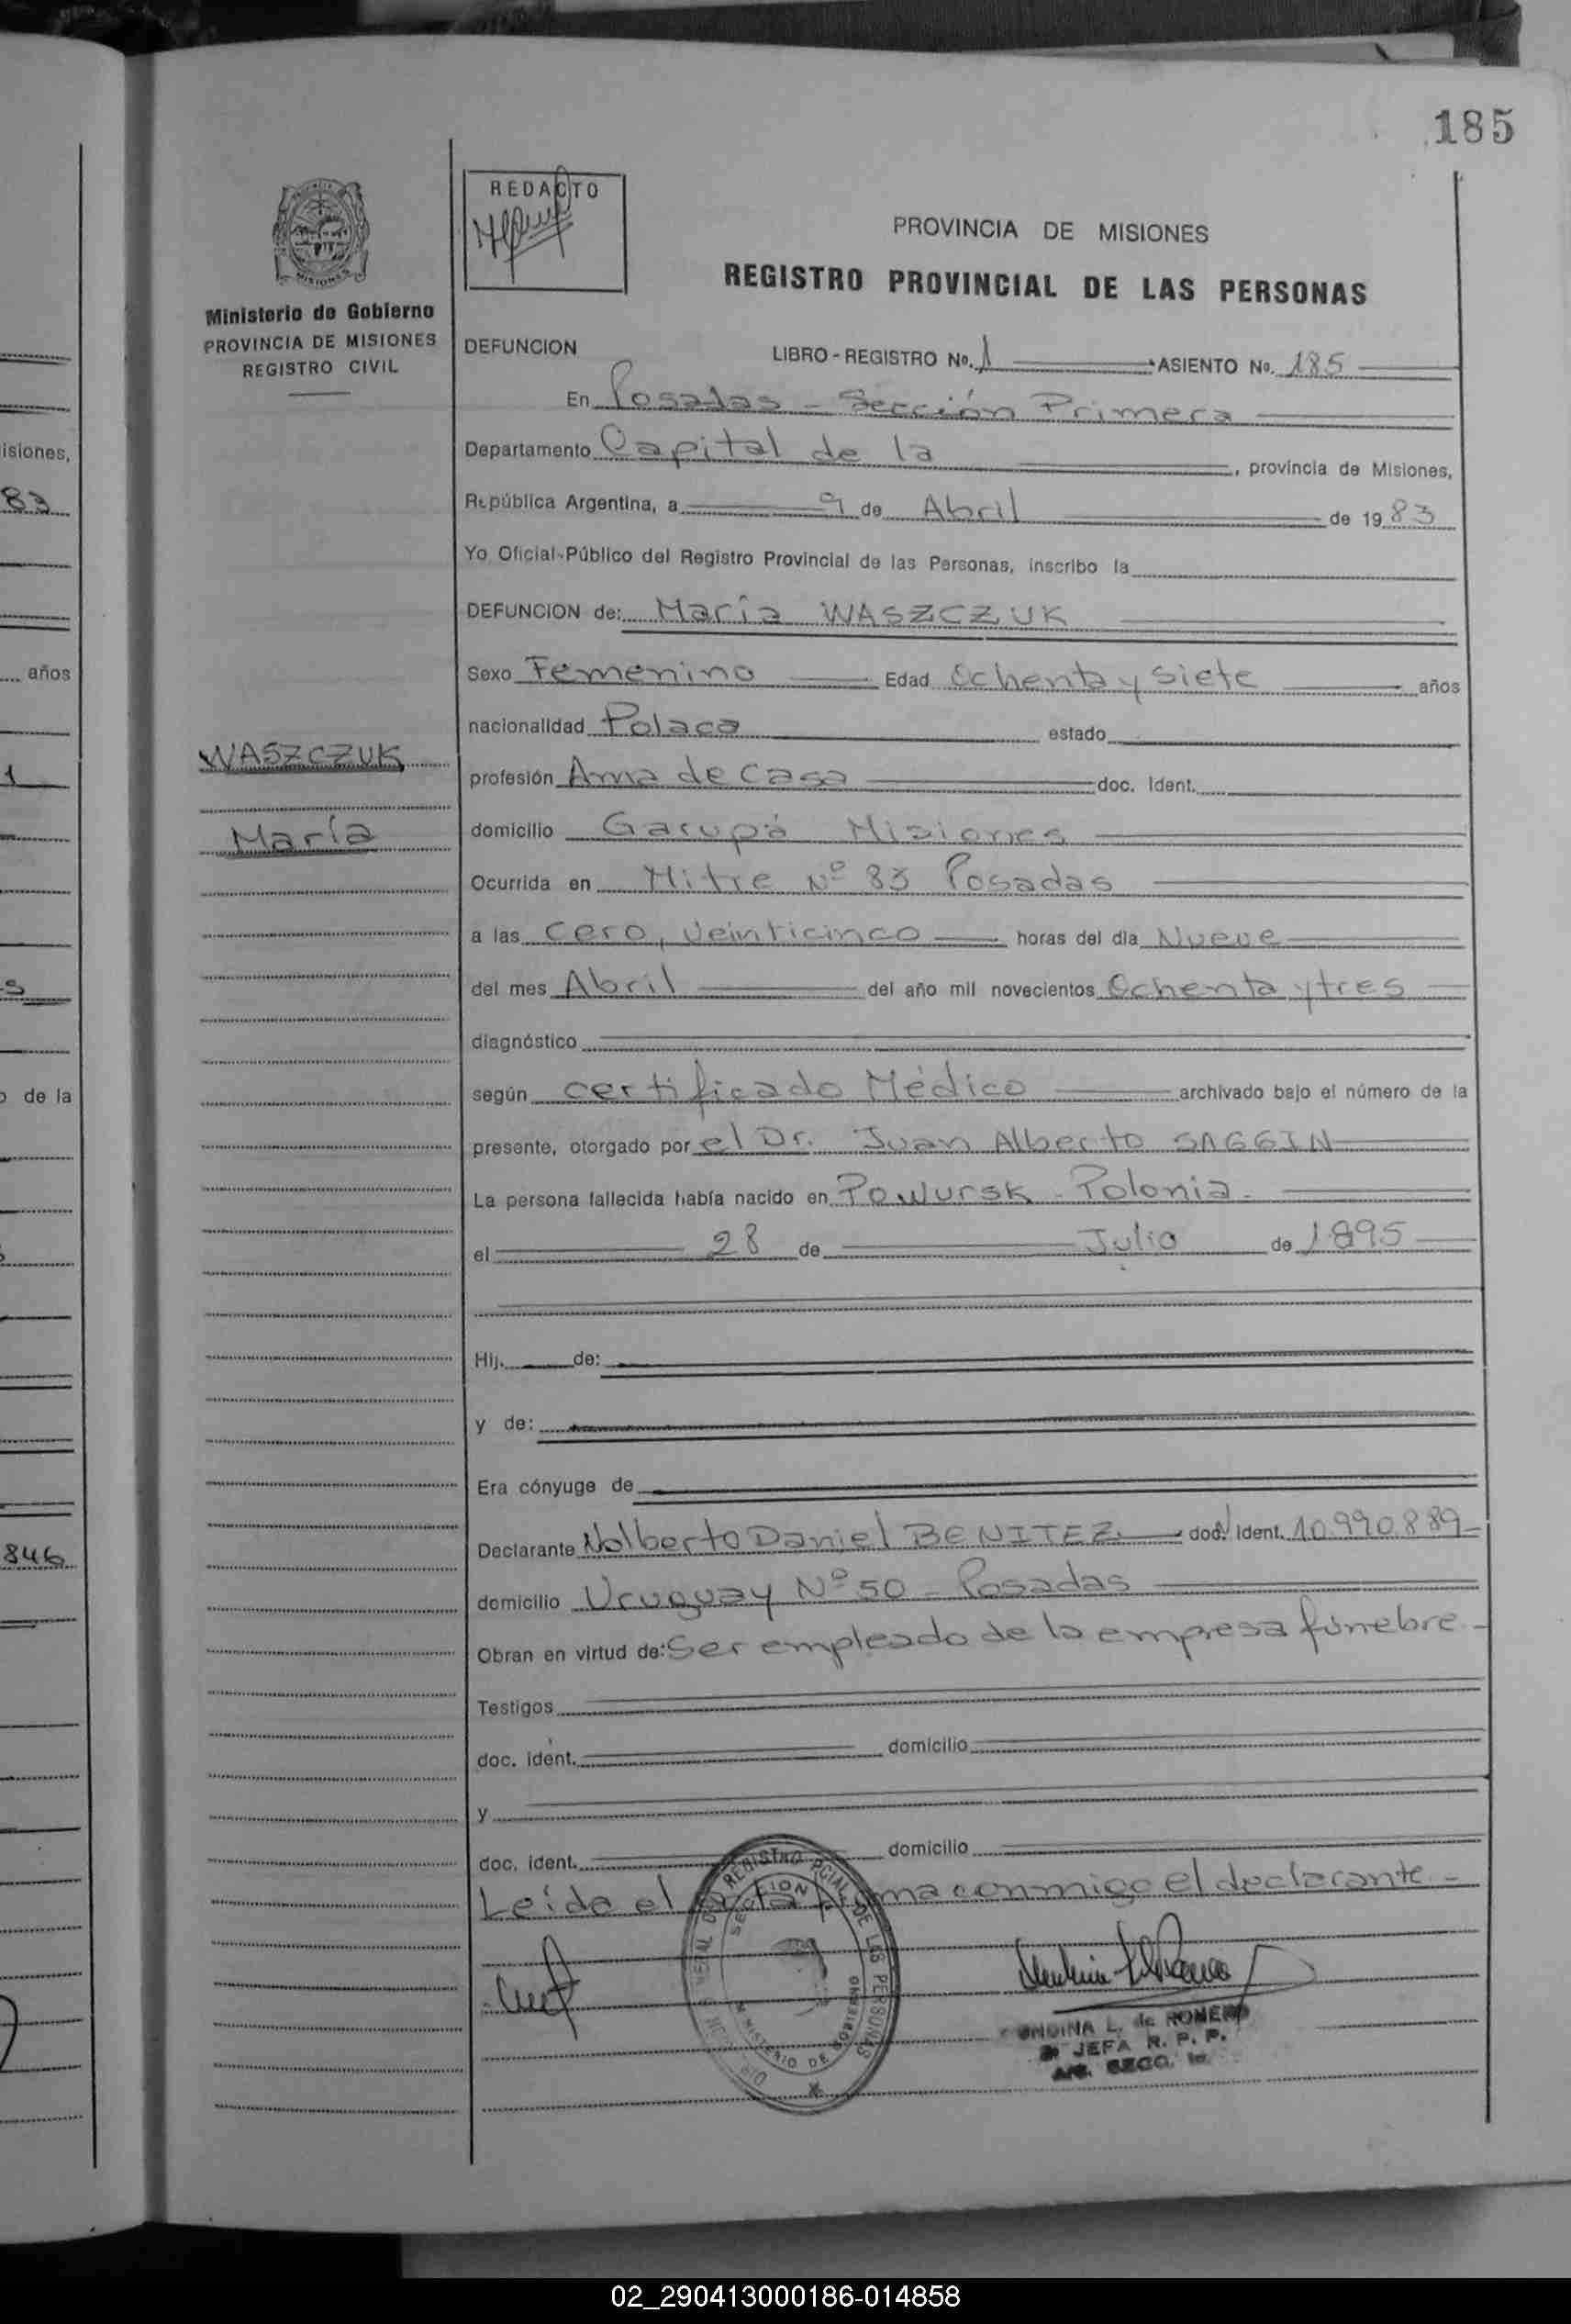 185
REDACTO
PROVINCIA DE MISIONES
REGISTRO PROVINCIAL DE LAS PERSONAS
MISIONES
Ministerio de Gobierno
PROVINCIA DE MISIONES
REGISTRO CIVIL
DEFUNCION LIBRO - REGISTRO No. 1 ASIENTO No. 185
En Posadas - Sección Primera
Departamento Capital de la , provincia de Misiones,
República Argentina, a 9 de Abril de 19 83
Yo Oficial Público del Registro Provincial de las Personas, inscribo la
DEFUNCION de: María WASZCZUK
Sexo Femenino Edad Ochenta y siete años
nacionalidad Polaca estado
WASZCZUK
María
profesión Ama de casa doc. Ident.
domicilio Garupá Misiones
Ocurrida en Mitre Nº 83 Posadas
a las cero, veinticinco horas del día Nueve
del mes Abril del año mil novecientos Ochenta y tres
diagnóstico
según certificado Médico archivado bajo el número de la
presente, otorgado por el Dr. Juan Alberto SAGGIN
La persona fallecida había nacido en Powursk - Polonia.
el 28 de Julio de 1895
Hij. de:
y de:
Era cónyuge de
Declarante Nolberto Daniel BENITEZ doc. Ident. 10.990.889
domicilio Uruguay Nº 50 - Posadas
Obran en virtud de: Ser empleado de la empresa fúnebre -
Testigos
doc. ident. domicilio
y
doc. ident. domicilio
Leída el acta firma conmigo el declarante. -
REGISTRO PCIAL. DE LAS PERSONAS
SECCION
MINISTERIO DE GOBIERNO
ONDINA L. de ROMERO
JEFA R. P. P.
isiones,
83
años
1
s
o de la
846
02_290413000186-014858